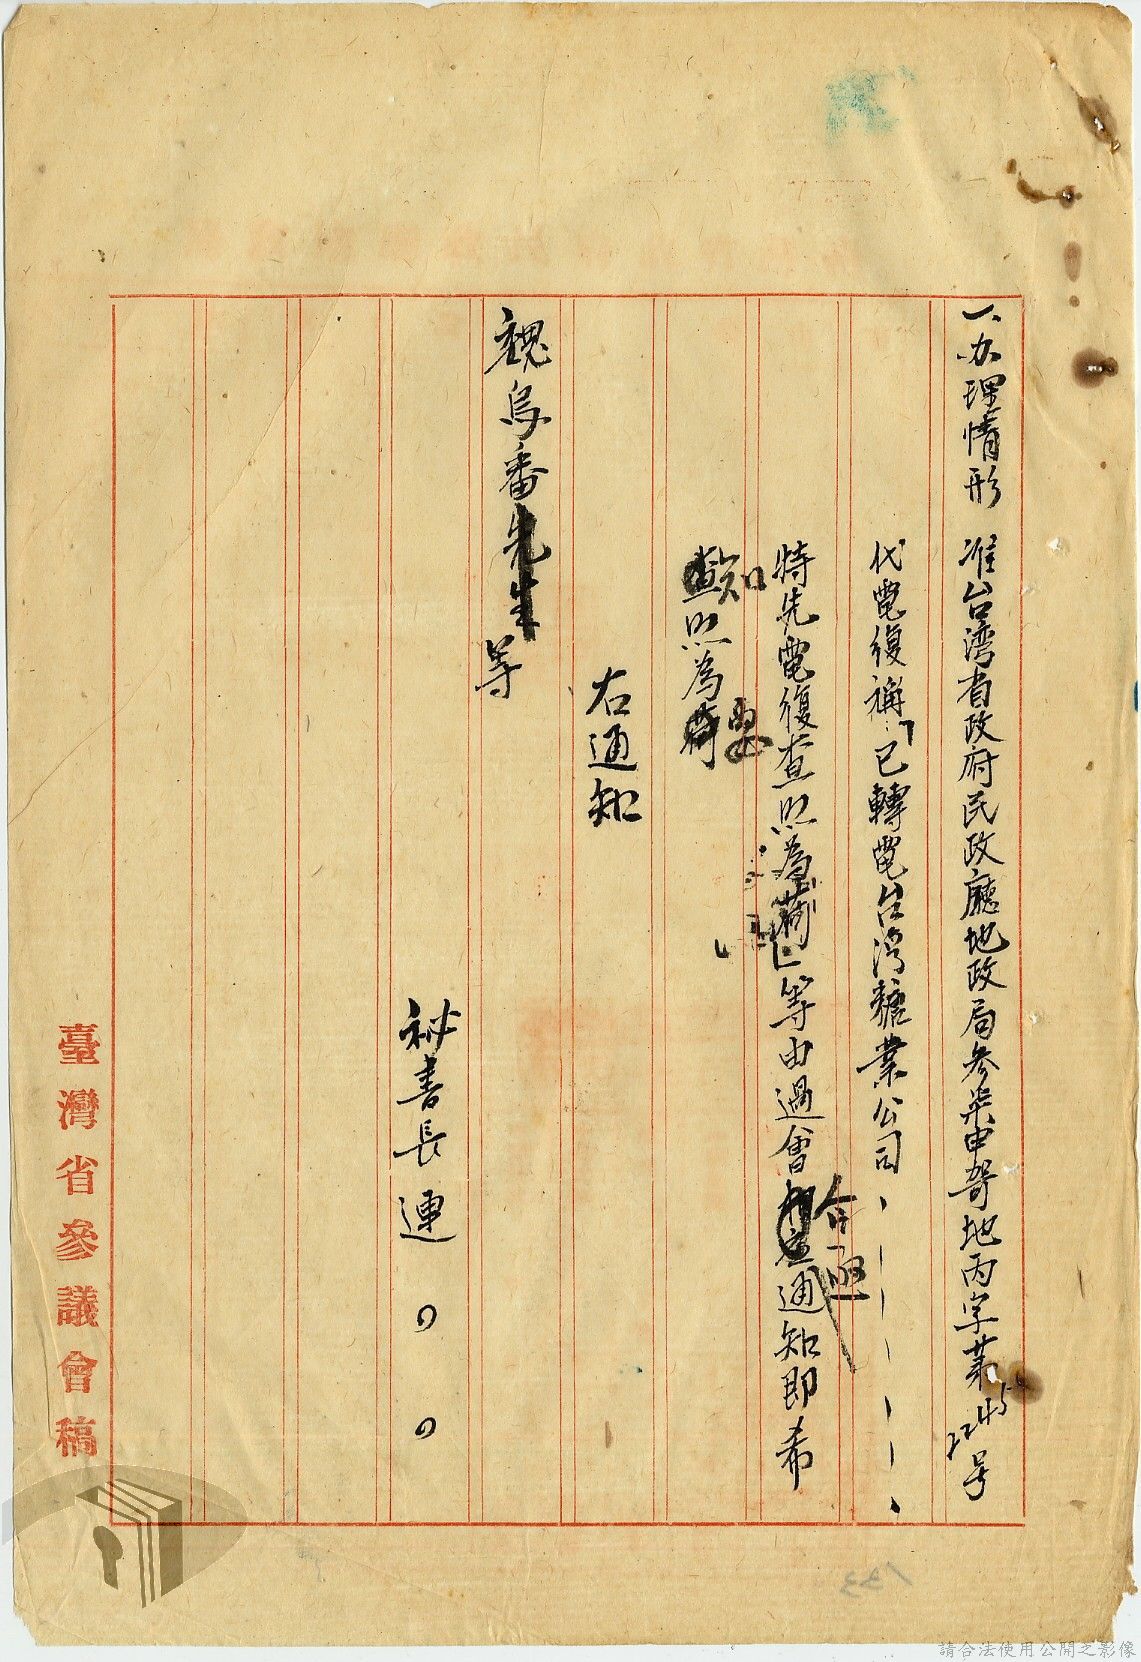 一、办理情形 准台湾省政府民政廳地政局参柒申哿地丙字苐2245号
代電復称「已轉電台湾糖業公司、－－－－－、
特先電復查照為荷」等由過會合亟通知即希
知照為要
右通知
魏烏番先生等
秘書長連〇〇
臺灣省參議會稿
133
請合法使用公開之影像